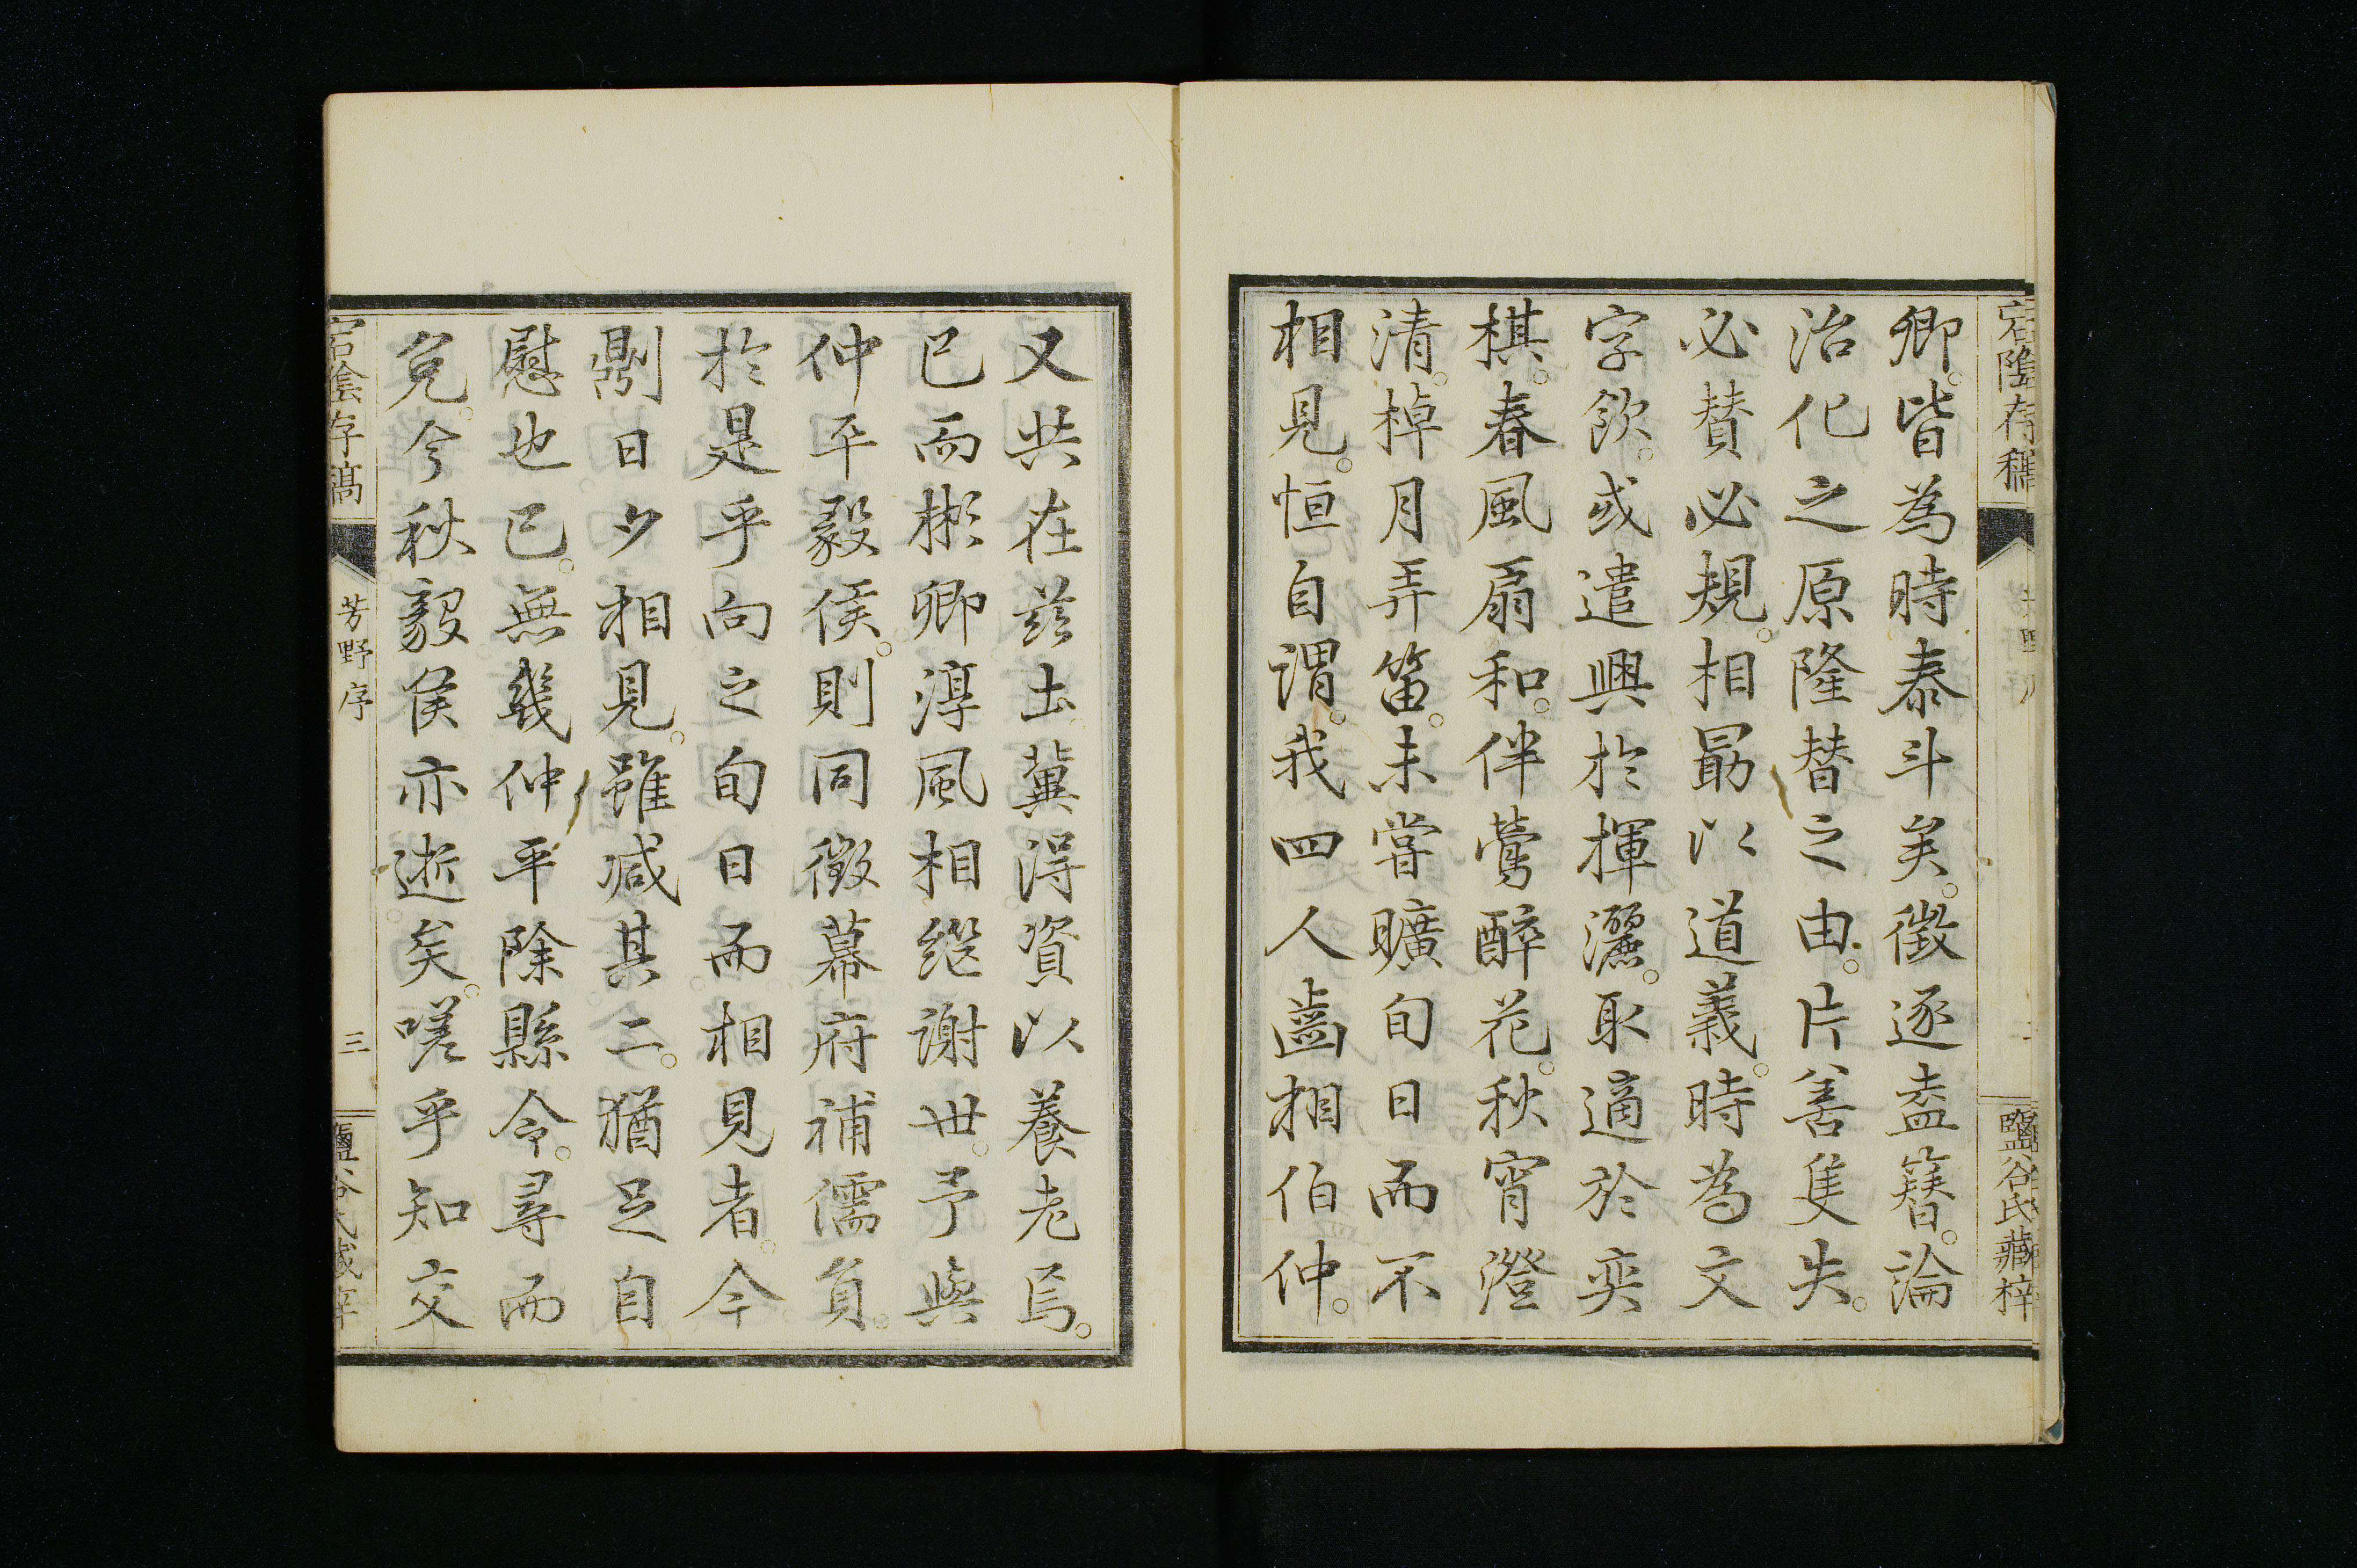 宕陰存稿
鹽谷氏藏梓
卿。皆為時泰斗矣。徵逐盍簪。論
治化之原隆替之由。片善隻失。
必賛必規。相勗以道義。時為文
字飲。或遣興於揮灑。取適於奕
棋。春風扇和。伴鶯醉花。秋宵澄
清。棹月弄笛。未嘗曠旬日而不
相見。恒自謂。我四人齒相伯仲。
又共在茲土。冀得資以養老焉。
已而彬卿淳風相繼謝世。予與
仲平毅侯。則同徵幕府補儒員。
於是乎向之旬日而相見者。今
則日少相見。雖減其二。猶足自
慰也已。無幾仲平除縣令。尋而
免。今秋毅侯亦逝矣。嗟乎知交
宕陰存稿
芳野序
三